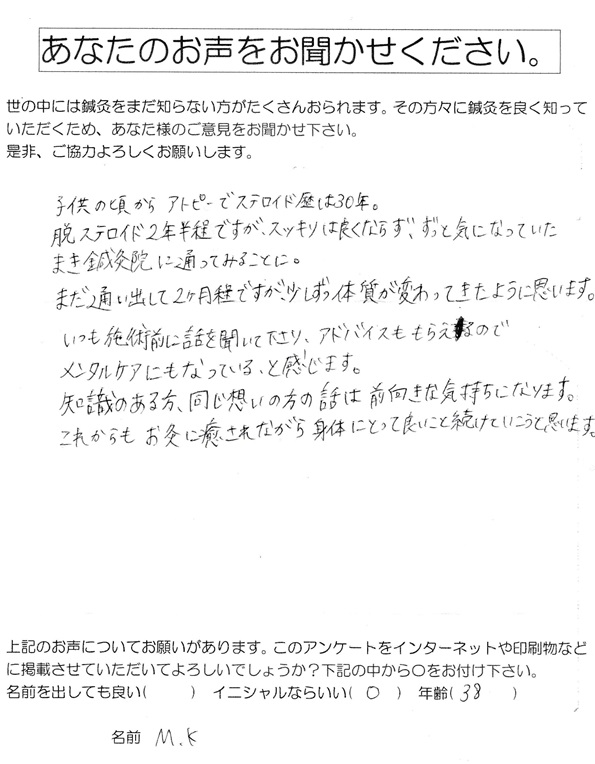 あなたのお声をお聞かせください。
世の中には鍼灸をまだ知らない方がたくさんおられます。その方々に鍼灸を良く知って
いただくため、あなた様のご意見をお聞かせ下さい。
是非、ご協力よろしくお願いします。
子供の頃から アトピーでステロイド歴は30年。
脱ステロイド2年半程ですが、スッキリは良くならず、ずっと気になっていた
まき鍼灸院に通ってみることに。
まだ通い出して2ヶ月程ですが、少しずつ体質が変わってきたように思います。
いつも施術前に話を聞いて下さり、アドバイスももらえるので
メンタルケアにもなっている、と感じます。
知識のある方、同じ想いの方の話は前向きな気持ちになります。
これからも お灸に癒されながら 身体にとって良いこと続けていこうと思います。
上記のお声についてお願いがあります。このアンケートをインターネットや印刷物など
に掲載させていただいてよろしいでしょうか?下記の中から○をお付け下さい。
名前を出しても良い( ) イニシャルならいい( ○ ) 年齢( 38 )
名前 M.K